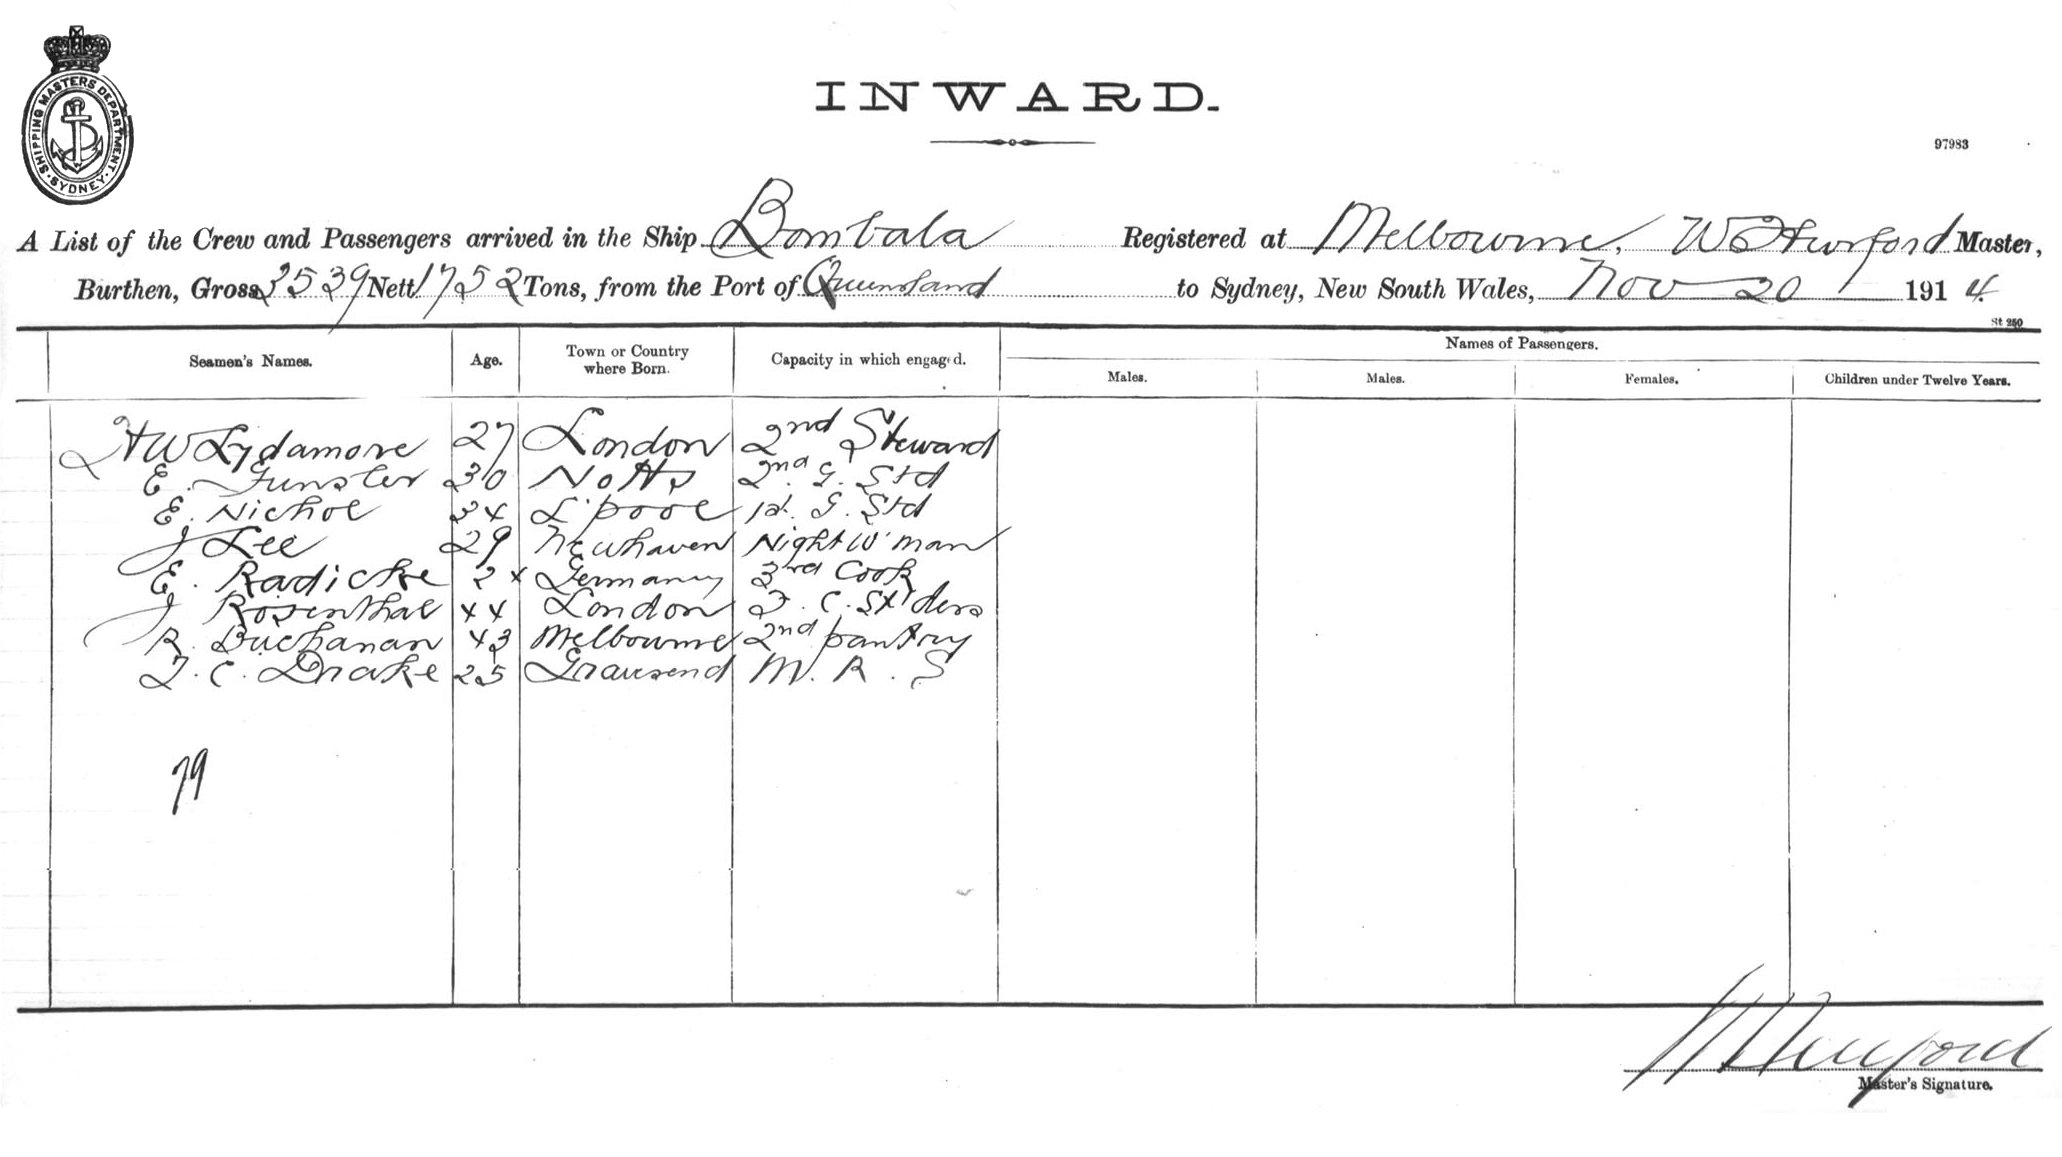 SHIPPING MASTERS DEPARTMENT · SYDNEY ·
INWARD.
97983
A List of the Crew and Passengers arrived in the Ship Bombala Registered at Melbourne, Master,
Burthen, Gross 3539 Nett 1752 Tons, from the Port of Queensland to Sydney, New South Wales, Nov 20 1914
St 250
Seamen's Names. Age. Town or Country where Born. Capacity in which engaged. Names of Passengers.
Males. Males. Females. Children under Twelve Years.
H W Lydamore 27 London 2nd Steward
E. Funsler 30 Notts 2nd. G. Std
E. Nichol 34 L'pool 1st. G. Std
J Lee 29 Newhaven Night W'man
E. Radicke 24 Germany 3rd Cook
J Rosenthal 44 London
R. Buchanan 43 Melbourne 2nd pantry
F. C. Drake 25 Gravesend M. R. S
79
Master's Signature.